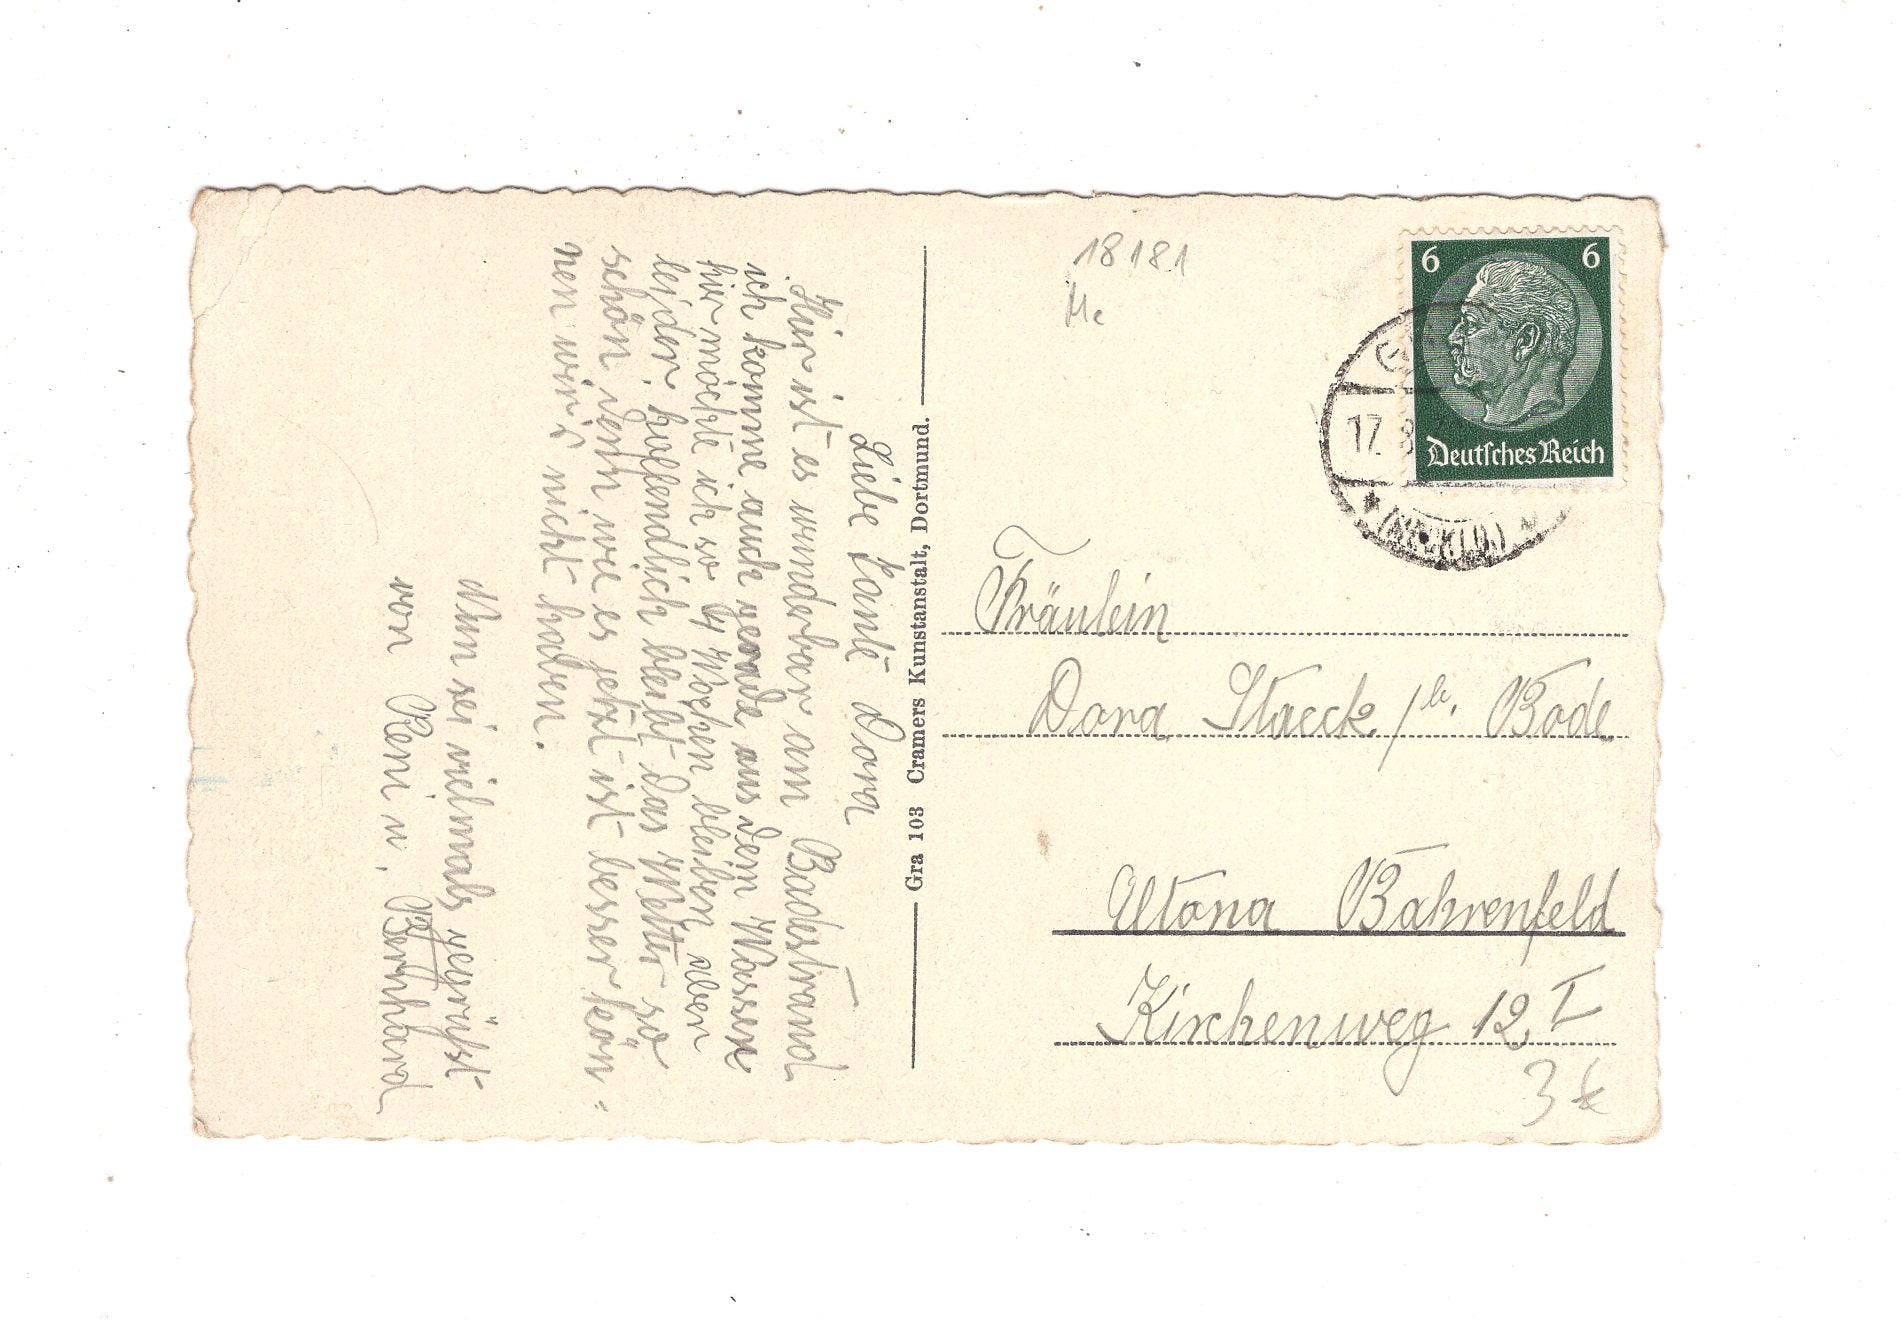 Liebe Tante Dora
Hier ist es wunderbar am Badestrand
ich komme auch gerade aus dem Wasser
hir möchte ich so 4 Wochen bleiben aber
leider, hoffendlich bleibt das Wetter so
schön denn wie es jetzt ist besser kön-
nen wir's nicht haben.
Nun sei vielmals gegrüßt
von Reni u. Bernhard
Gra 103 Cramers Kunstanstalt, Dortmund.
18181
Me
6 6
Deutsches Reich
17. 8
Fräulein
Dora Staeck / b. Bode
Altona Bahrenfeld
Kirchenweg 12. I
3